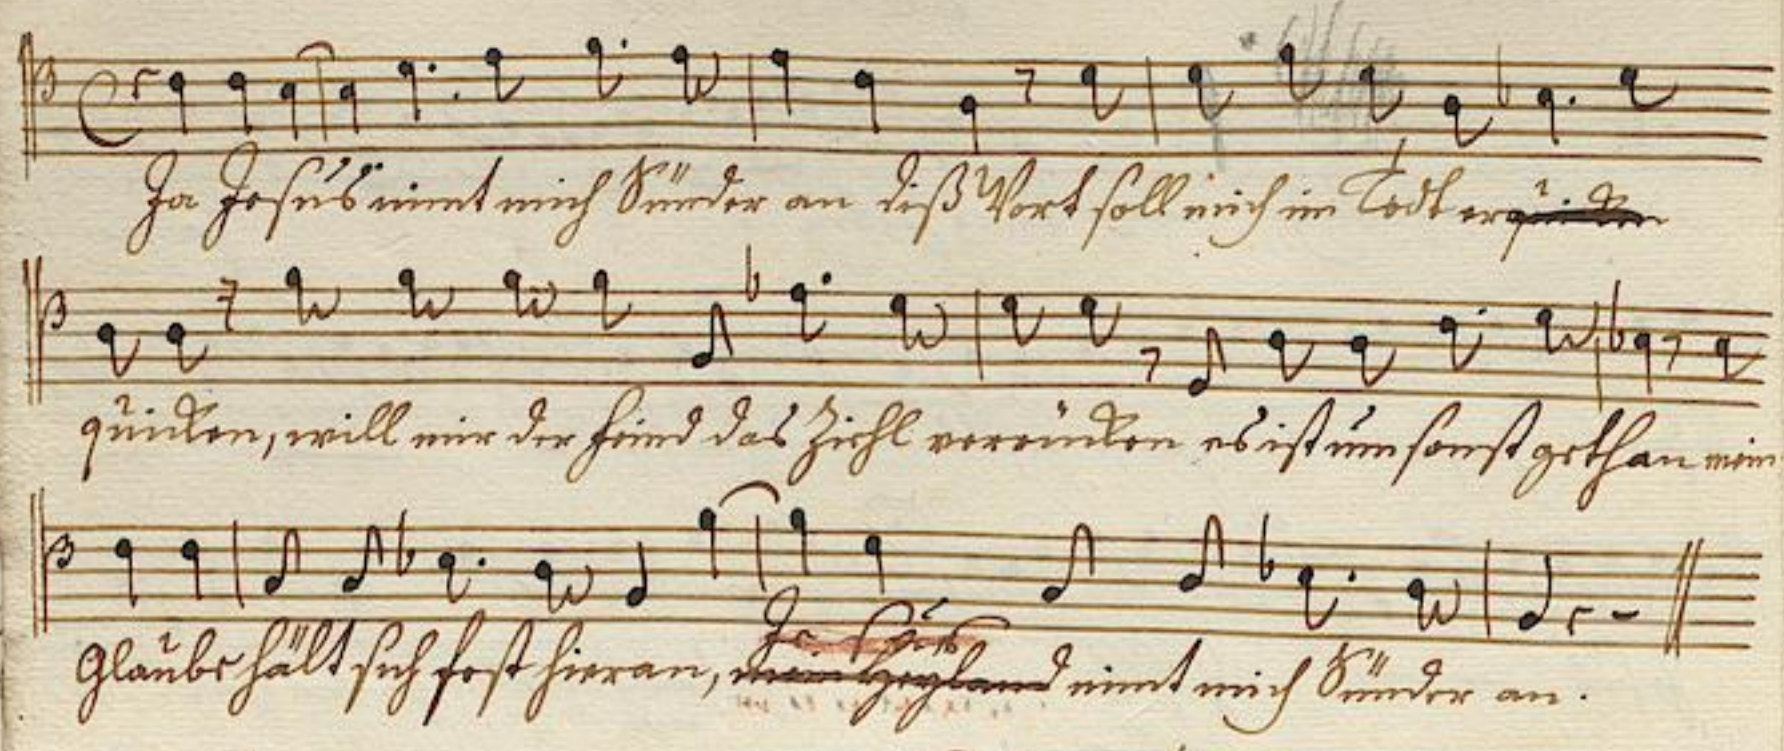 Ja Jesus nimt mich Sünder an diß Wort soll mich im Todt er
quicken, will mir der Feind das Ziehl verrücken es ist um sonst gethan mein
Ja Jesus
Glaube hält sich fest hieran, mein Heyland nimt mich Sünder an.